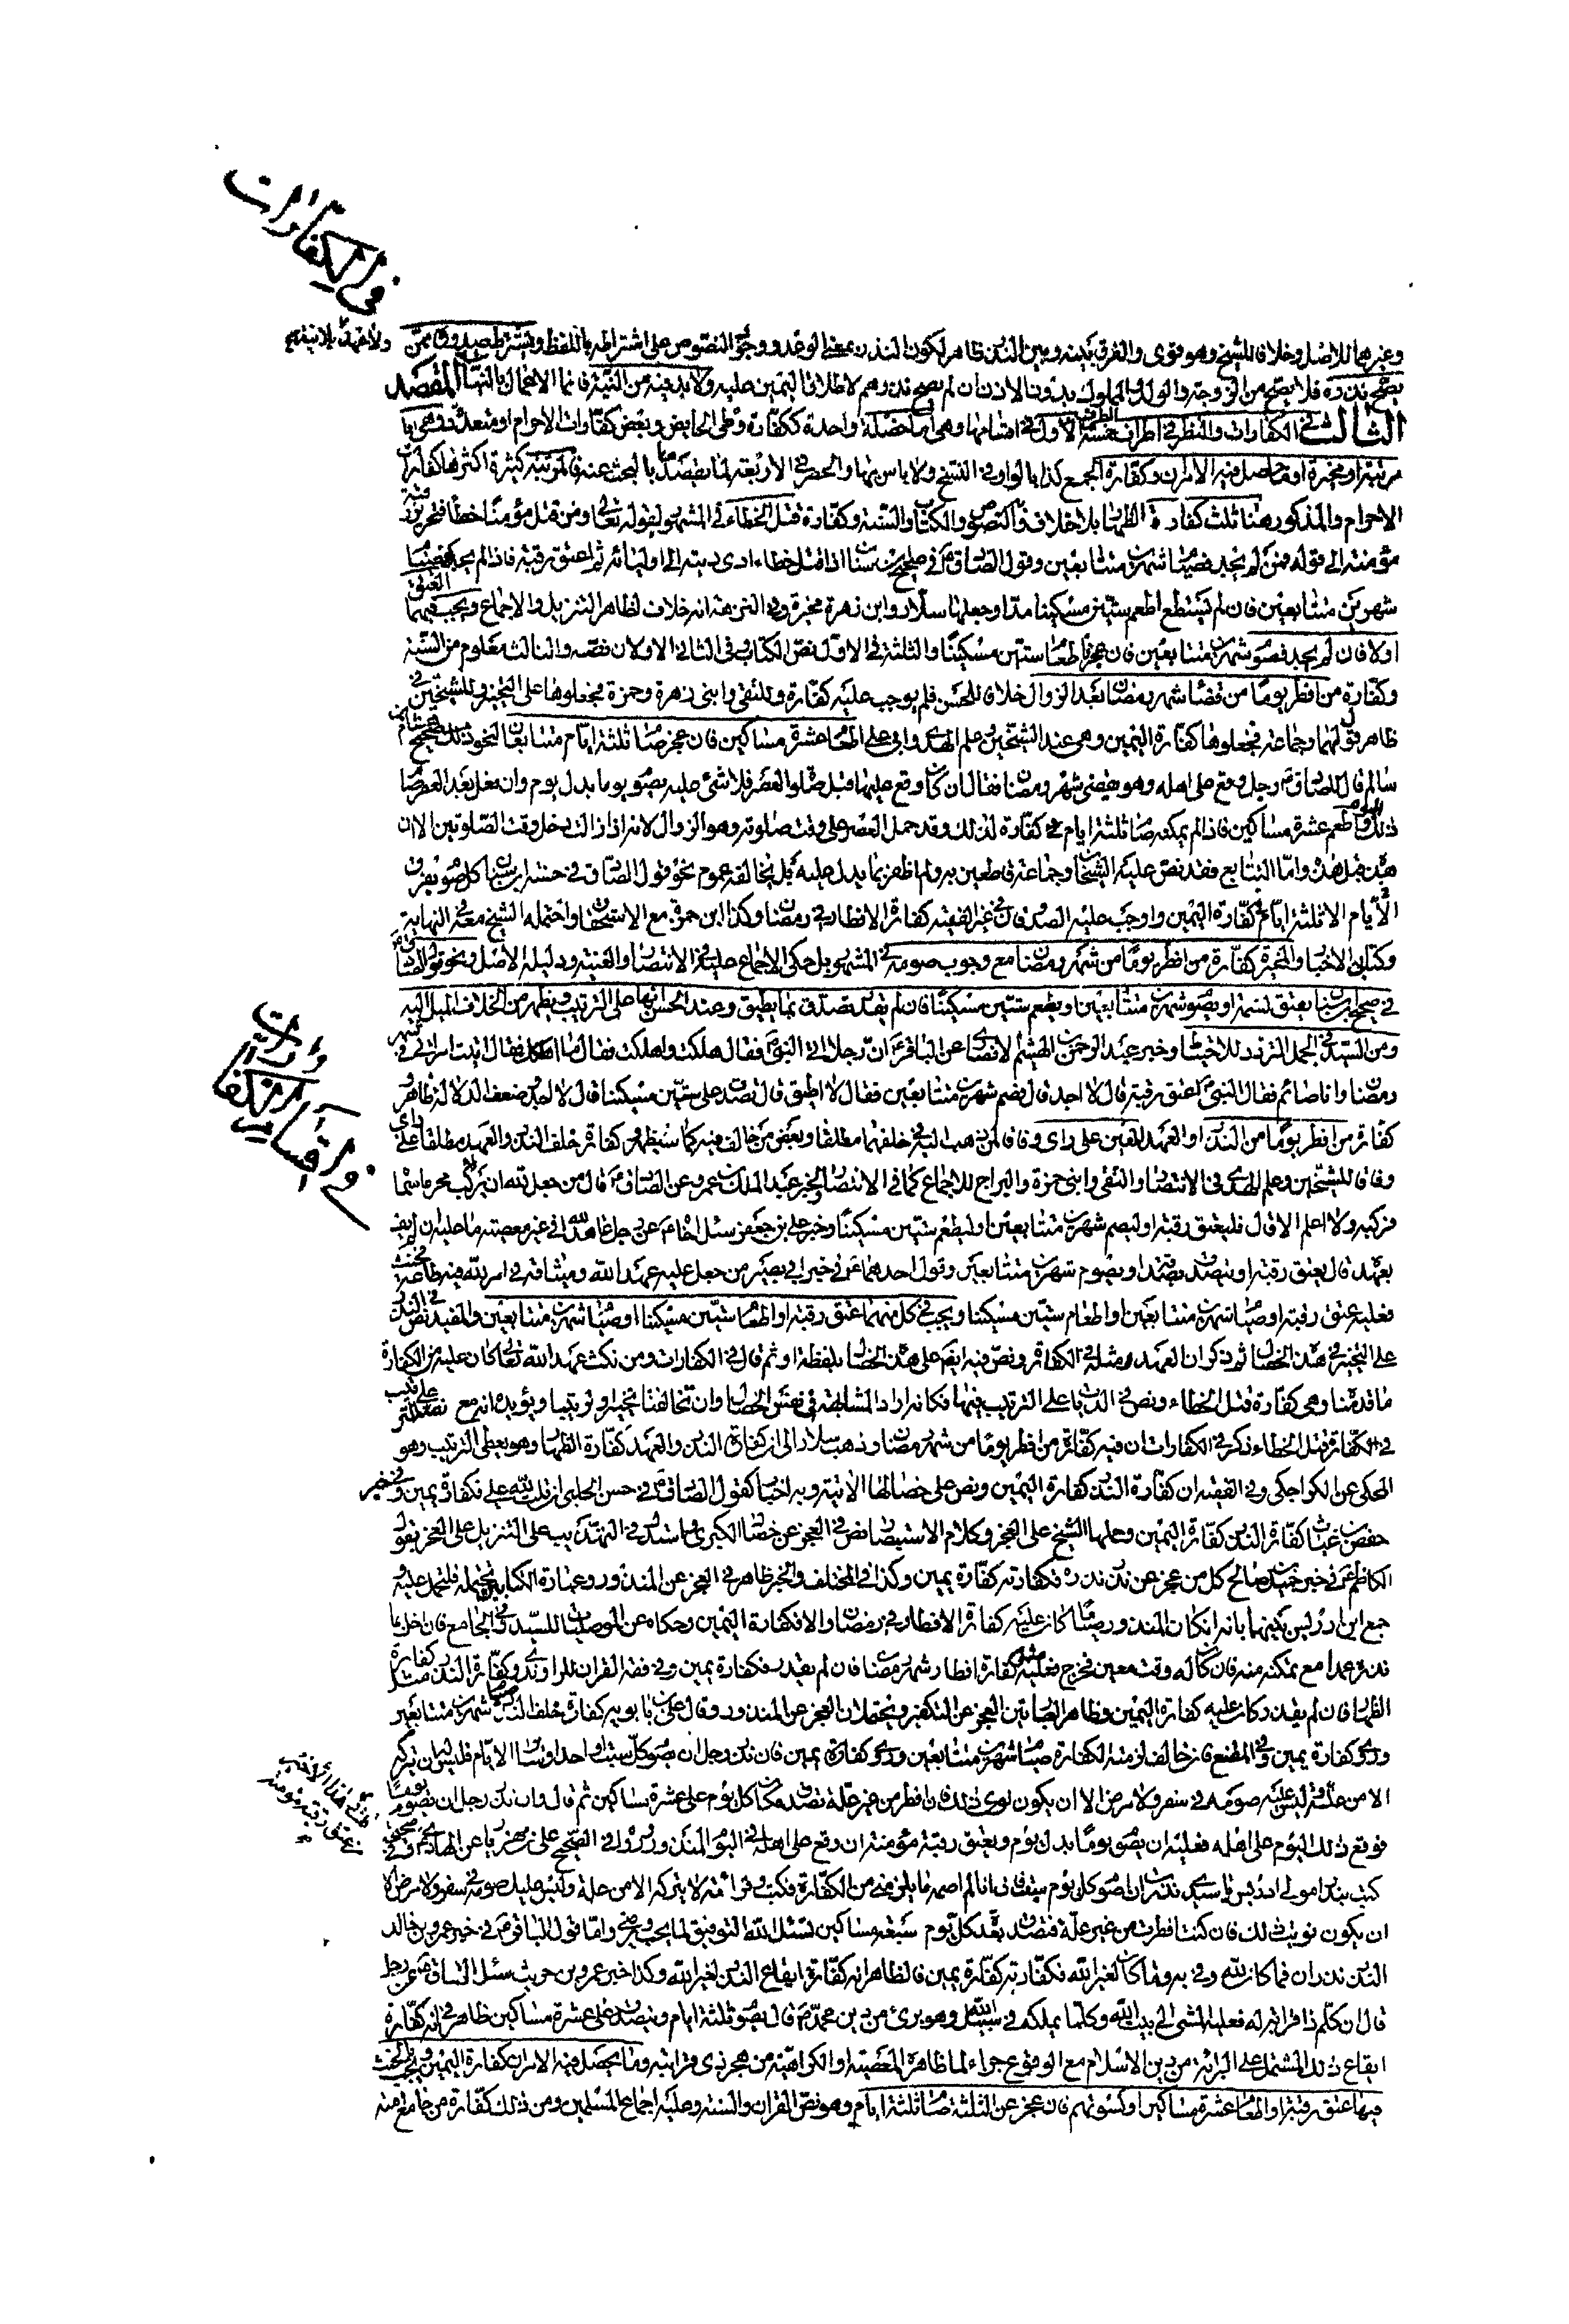 في الكفارات
وغيرهما للاصل وخلافا للشيخ وهو قوى والفرق بينه وبين النذر ظاهر لكون النذر بمعنى الوعد و النصوص على اشتراطه باللفظ ويشترط صدوره ممن
يصح نذره فلا يصح من الزوجة والولد والمملوك بدون الاذن ان لم يصح نذرهم لاطلاق اليمين عليه ولابد فيه من النية فانما الاعمال بالنيات المقصد
الثالث في الكفارات والنظر في اطراف خمسة الطرف الاول في اقسامها وهي اما خصلة واحدة ككفارة وطى الحايض وبعض كفارات الاحرام او متعددة وهي اما
مرتبة او مخيرة او ما حصل فيه الامران وكفارة الجمع كذا بالواو في النسخ ولا باس بها والحصر في الاربعة لما يقصد بالبحث عنه فالمرتبة كثيرة اكثرها كفارات
الاحرام والمذكور هنا ثلث كفارة الظهار بلا خلاف والنصوص والكتاب والسنة وكفارة قتل الخطاء في المشهور لقوله تعالى ومن قتل مؤمنا خطأ فتحرير رقبة
مؤمنة الى قوله فمن لم يجد فصيام شهرين متتابعين وقول الصادق في صحيح ابن سنان اذا قتل خطاء ادى ديته الى اوليائه ثم اعتق رقبة فان لم يجد فصيام
شهرين متتابعين فان لم يستطع اطعم ستين مسكينا مدا وجعلها سلار وابن زهرة مخيرة وفي النزهة انه خلاف لظاهر التنزيل والاجماع ويجب فيهما العتق
اولا فان لم يجد فصوم شهرين متتابعين فان عجز فاطعام ستين مسكينا والثلثة في الاول نص الكتاب وفي الثاني الاولان نصه والثالث معلوم من السنة
وكفارة من افطر يوما من قضاء شهر رمضان بعد الزوال خلافا للحسن فلم يوجب عليه كفارة وللتقى وابنى زهرة وحمزة فجعلوها على التخيير وللشيخين في
ظاهر قولهما وجماعة فجعلوها كفارة اليمين وهي عند الشيخين وعلم الهدى وابي على اطعام عشرة مساكين فان عجز صام ثلثة ايام متتابعات لنحو ذلك صحيح هشام بن
سالم قال للصادق رجل وقع على اهله وهو يقضى شهر رمضان فقال ان كان وقع عليها قبل صلوة العصر فلا شئ عليه يصوم يوما بدل يوم وان فعل بعد العصر صام
ذلك اليوم واطعم عشرة مساكين فان لم يمكنه صام ثلثة ايام كفارة لذلك وقد حمل العصر على وقت صلوته وهو الزوال لانه اذا زالت دخل وقت الصلوتين الا ان
هذه قبل هذه واما التتابع فقد نص عليه الشيخان وجماعة قاطعين به ولم اظفر بما يدل عليه بل يخالفه عموم نحو قول الصادق في حسن ابن سنان كل صوم يفرق
الا ثلثة ايام في كفارة اليمين واوجب عليه الصدوقان في غير الفقيه كفارة الافطار في رمضان وكذا ابن حمزة مع الاستخفاف واحتمله الشيخ معه في النهاية
وكتابي الاخبار والمخيرة كفارة من افطر يوما من شهر رمضان مع وجوب صومه في المشهور بل حكى الاجماع عليه في الانتصار والغنية ودليله الاصل ونحو قول الصادق
في صحيح ابن سنان يعتق نسمة او يصوم شهرين متتابعين او يطعم ستين مسكينا فان لم يقدر تصدق بما يطيق وعند الحسن انها على الترتيب ويظهر من الخلاف الميل اليه
ومن السيد في الجمل التردد للاحتياط وخبر عبد المؤمن بن الهيثم الانصارى عن الباقر ان رجلا اتى النبي فقال هلكت واهلكت فقال ما اهلكك فقال اتيت امراتي في شهر
رمضان وانا صائم فقال النبي اعتق رقبة قال لا اجد قال فصم شهرين متتابعين فقال لا اطيق قال تصدق على ستين مسكينا قال لا اجد وضعف الدلالة ظاهر و
كفارة من افطر يوما من النذر او العهد المعين على راى وفاقا لمن ذهب اليه في خلفهما مطلقا وبعض من خالف فيه كما سيظهر وكفارة خلف النذر والعهد مطلقا على راى
وفاقا للشيخين وعلم الهدى في الانتصار والتقى وابنى حمزة والبراج للاجماع كما في الانتصار ولخبر عبد الملك بن عمرو عن الصادق قال من جعل لله ان لا يركب محرما سماه
فركبه ولا اعلم الا قال فليعتق رقبة او ليصم شهرين متتابعين او ليطعم ستين مسكينا وخبر على بن جعفر سئل اخاه عن رجل عاهد الله في غير معصية ما عليه ان لم يف
بعهده قال يعتق رقبة او يتصدق بصدقة او يصوم شهرين متتابعين وقول احدهما في خبر ابي بصير من جعل عليه عهد الله وميثاقه في امر لله فيه طاعة فحنث
فعليه عتق رقبة او صيام شهرين متتابعين او اطعام ستين مسكينا ويجب في كل منهما عتق رقبة او اطعام ستين مسكينا او صيام شهرين متتابعين والمفيد نص في النذر
على التخيير في هذه الخصال ثم ذكر ان العهد مثله في الكفارة ونص فيه ايضا على هذه الخصال بلفظة او ثم قال في الكفارات ومن نكث عهد الله تعالى كان عليه من الكفارة
ما قدمناه وهي كفارة قتل الخطاء ونص في الديات على الترتيب فيها فكانه اراد المشابهة في نفس الخصال وان تخالفتا تخييرا وترتيبا ويؤيده انه مع نصه على ترتيب
في كفارة قتل الخطاء ذكر في الكفارات ان فيه كفارة من افطر يوما من شهر رمضان وذهب سلار الى ان كفارتي النذر والعهد كفارة الظهار وهو يعطى الترتيب وهو
المحكى عن الكراجكى وفي الفقيه ان كفارة النذر كفارة اليمين ونص على خصالها الاتية وبه اخبار كقول الصادق في حسن الحلبي ان قلت لله على فكفارة يمين وفي خبر
حفص بن غياث كفارة النذر كفارة اليمين وحملها الشيخ على العجز وكلام الاستبصار نص في العجز عن خصال الكبرى واستدل في التهذيب على التنزيل على العجز بقول
الكاظم في خبر جميل بن صالح كل من عجز عن نذر نذره فكفارته كفارة يمين وكذا في المختلف والخبر ظاهر في العجز عن المنذور وعبارة الكتابين يحتمله فليحمل عليه و
جمع ابن ادريس بينهما بانه ان كان المنذور صياما كان عليه كفارة الافطار في رمضان والا فكفارة اليمين وحكاه عن الموصليات للسيد وفي الجامع فان اخل بما
نذره عمدا مع تمكنه منه فان كان له وقت معين فخرج فعليه مثل كفارة افطار شهر رمضان فان لم يقدر فكفارة يمين وفي فقه القران للراوندى وكفارة النذر مثل كفارة
الظهار فان لم يقدر كان عليه كفارة اليمين وظاهر العبارتين العجز عن التكفير ويحتملان العجز عن المنذور وقال على بن بابويه كفارة خلف النذر صيام شهرين متتابعين
وروى كفارة يمين وفي المقنع فان خالف لزمته الكفارة صيام شهرين متتابعين وروى كفارة يمين فان نذر رجل ان يصوم كل سبت او احد او سائر الايام فليس له ان يتركه
الا من علة وليس عليه صومه في سفر ولا مرض الا ان يكون نوى ذلك فان افطر من غير علة تصدق مكان كل يوم على عشرة مساكين ثم قال وان نذر رجل ان يصوم يوما
فوقع ذلك اليوم على اهله فعليه ان يصوم يوما بدل يوم ويعتق رقبة مؤمنة ان وقع على اهله في اليوم المنذور وروى في الصحيح على بن مهزيار عن الهادى وفي صحيحه
كتب بندار مولى ادريس يا سيدى نذرت ان اصوم كل يوم سبت فان انا لم اصمه ما يلزمنى من الكفارة فكتب وقراته لا يتركه الا من علة وليس عليك صومه في سفر ولا مرض الا
ان يكون نويت ذلك فان كنت افطرت من غير علة فتصدق بعدد كل يوم سبعة مساكين نسئل الله التوفيق لما يحب ويرضى واما قول الباقر في خبر عمرو بن خالد
النذر نذران فما كان لله وفى به وما كان لغير الله فكفارته كفارة يمين فالظاهر انه كفارة ايقاع النذر لغير الله وكذا خبر عمرو بن حريث سئل الصادق عن رجل
قال ان كلم ذا قرابة له فعليه المشى الى بيت الله وكلما يملكه في سبيل الله وهو برئ من دين محمد قال يصوم ثلثة ايام ويتصدق على عشرة مساكين ظاهر في انه كفارة
ايقاع ذلك المشتمل على البرائة من دين الاسلام مع الوقوع جزاء لما ظاهره المعصية او الكراهية من هجر ذى قرابته وما يحصل فيه الامران كفارة اليمين ويجب بالحنث
فيها عتق رقبة او اطعام عشرة مساكين او كسوتهم فان عجز عن الثلثة صام ثلثة ايام وهو نص القران والسنة وعليه اجماع المسلمين ومن ذلك كفارة من جامع امته